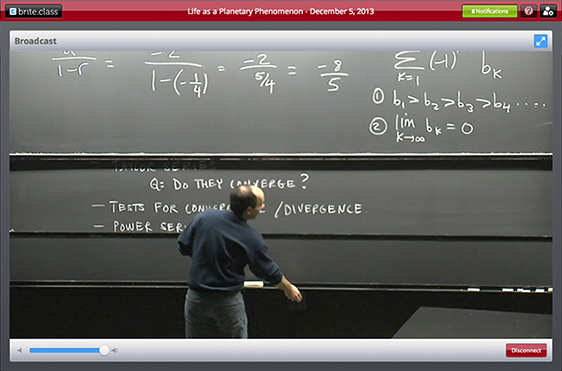 brite.class
Life as a Planetary Phenomenon - December 5, 2013
8 Notifications
Broadcast
1-r = -2 / 1-(-1/4) = -2 / 5/4 = -8 / 5
∑ k=1 (-1)^k b_k
① b₁ > b₂ > b₃ > b₄ ....
② lim k→∞ b_k = 0
TAYLOR SERIES
Q= DO THEY CONVERGE?
- TESTS FOR /DIVERGENCE
- POWER
Disconnect